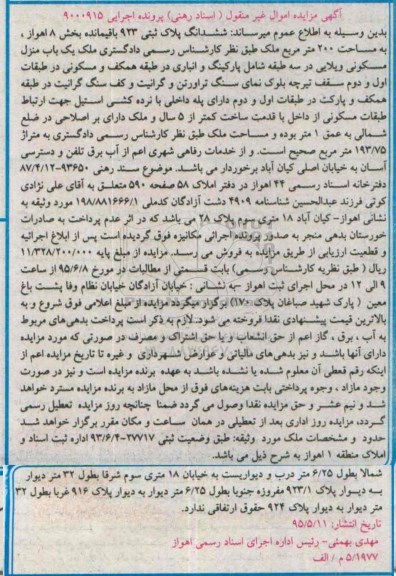 آگهی مزایده اموال غیر منقول ( اسناد رهنی) پرونده اجرایی ۹۰۰۰۹۱۵
بدین وسیله به اطلاع عموم میرساند: ششدانگ پلاک ثبتی ۹۲۳ باقیمانده بخش ۸ اهواز ،
به مساحت ۲۰۰ متر مربع ملک طبق نظر کارشناس رسمی دادگستری ملک یک باب منزل
مسکونی ویلایی در سه طبقه شامل پارکینگ و انباری در طبقه همکف و مسکونی در طبقات
اول و دوم سقف تیرچه بلوک نمای سنگ تراورتن و گرانیت و کف سنگ گرانیت در طبقه
همکف و پارکت در طبقات اول و دوم دارای پله داخلی با نرده کشی استیل جهت ارتباط
طبقات مسکونی از داخل با قدمت ساخت کمتر از ۵ سال و ملک دارای بر اصلاحی در ضلع
شمالی به عمق ۱ متر بوده و مساحت ملک طبق نظر کارشناس رسمی دادگستری به متراژ
۱۹۳/۷۵ متر مربع صحیح است. و از خدمات رفاهی شهری اعم از آب برق تلفن و دسترسی
آسان به خیابان اصلی کیان آباد برخوردار می باشد. موضوع سند رهنی ۹۳۶۵۰-۸۷/۴/۱۲
دفترخانه اسناد رسمی ۴۴ اهواز در دفتر املاک ۵۸ صفحه ۵۹۰ متعلق به آقای علی نژادی
کوتی فرزند عبدالحسین شناسنامه ۴۹۰۹ دشت آزادگان کدملی ۱۹۸/۸۸۱۶۶۶/۱ مورد وثیقه به
نشانی اهواز- کیان آباد ۱۸ متری سوم پلاک ۲۸ می باشد که در اثر عدم پرداخت به صادرات
خوزستان بدهی منجر به صدور پرونده اجرائی مکانیزه فوق گردیده است پس از ابلاغ اجرائیه
و قطعیت ارزیابی از طریق مزایده به فروش می رسد. مزایده از مبلغ پایه ۱۱/۳۲۸/۲۰۰/۰۰۰
ریال ( طبق نظریه کارشناس رسمی) بابت قسمتی از مطالبات در مورخ ۹۵/۶/۸ از ساعت
۹ الی ۱۲ در محل اجرای ثبت اهواز -به نشانی : خیابان آزادگان خیابان نظام وفا پشت باغ
معین ( پارک شهید صباغان پلاک ۱۷۰) برگزار میگردد مزایده از مبلغ اعلامی فوق شروع و به
بالاترین قیمت پیشنهادی نقدا فروخته می شود. لازم به ذکر است پرداخت بدهی های مربوط
به آب ، برق ، گاز اعم از حق انشعاب و یا حق اشتراک و مصرف در صورتی که مورد مزایده
دارای آنها باشد و نیز بدهی های مالیاتی و عوارض شهرداری و غیره تا تاریخ مزایده اعم از
اینکه رقم قعطی آن معلوم شده یا نشده باشد به عهده برنده مزایده است و نیز در صورت
وجود مازاد ، وجوه پرداختی بابت هزینه‌های فوق از محل مازاد به برنده مزایده مسترد خواهد
شد و نیم عشر و حق مزایده نقدا وصول می گردد ضمنا چنانچه روز مزایده تعطیل رسمی
گردد، مزایده روز اداری بعد از تعطیلی در همان ساعت و مکان مقرر برگزار خواهد شد
حدود و مشخصات ملک مورد وثیقه: طبق وضعیت ثبتی ۲۷۷۱۷-۹۳/۶/۴ اداره ثبت اسناد و
املاک منطقه ۱ اهواز به شرح ذیل می باشد.
شمالا بطول ۶/۲۵ متر درب و دیواریست به خیابان ۱۸ متری سوم شرقا بطول ۳۲ متر دیوار
بسه دیسوار پلاک ۹۲۳/۱ مفروزه جنوبا بطول ۶/۲۵ متر دیوار به دیوار پلاک ۹۱۶ غربا بطول ۳۲
متر دیوار به دیوار پلاک ۹۲۴ حقوق ارتفاقی ندارد.
تاریخ انتشار: ۹۵/۵/۱۱
مهدی بهمئی- رئیس اداره اجرای اسناد رسمی اهواز
۵/۱۹۷۷ م / الف